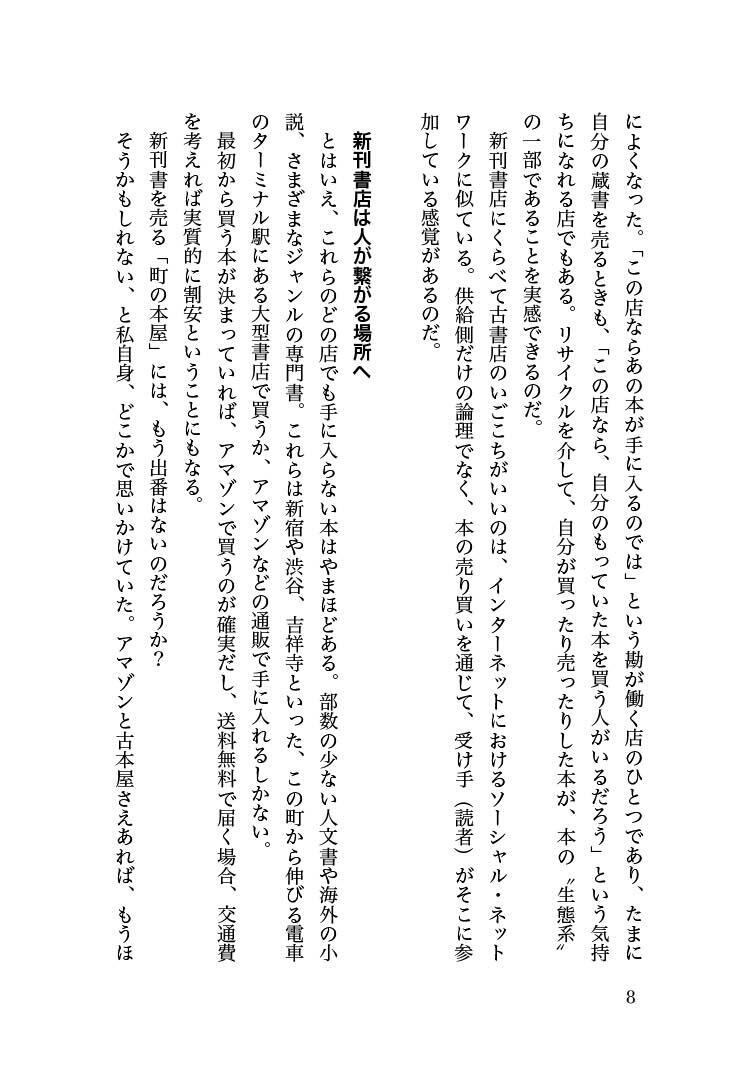 によくなった。「この店ならあの本が手に入るのでは」という勘が働く店のひとつであり、たまに
自分の蔵書を売るときも、「この店なら、自分のもっていた本を買う人がいるだろう」という気持
ちになれる店でもある。リサイクルを介して、自分が買ったり売ったりした本が、本の〝生態系〟
の一部であることを実感できるのだ。
新刊書店にくらべて古書店のいごこちがいいのは、インターネットにおけるソーシャル・ネット
ワークに似ている。供給側だけの論理でなく、本の売り買いを通じて、受け手（読者）がそこに参
加している感覚があるのだ。
新刊書店は人が繋がる場所へ
とはいえ、これらのどの店でも手に入らない本はやまほどある。部数の少ない人文書や海外の小
説、さまざまなジャンルの専門書。これらは新宿や渋谷、吉祥寺といった、この町から伸びる電車
のターミナル駅にある大型書店で買うか、アマゾンなどの通販で手に入れるしかない。
最初から買う本が決まっていれば、アマゾンで買うのが確実だし、送料無料で届く場合、交通費
を考えれば実質的に割安ということにもなる。
新刊書を売る「町の本屋」には、もう出番はないのだろうか？
そうかもしれない、と私自身、どこかで思いかけていた。アマゾンと古本屋さえあれば、もうほ
8